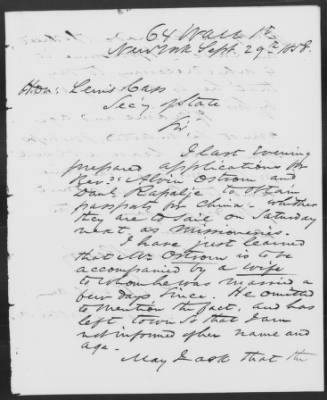 64 Wall St.
New York Sept. 29th 1858.
Hon: Lewis Cass
Sec'y of State
Sir.
I last evening
prepared applications for
Revds Alvin Ostrom and
Danl Rapalje to obtain
passports for China - whither
they are to sail on Saturday
next as missionaries.
I have just learned
that Mr Ostrom is to be
accompanied by a wife
to whom he was married a
few days since. He omitted
to mention the fact, and has
left town so that I am
not informed of her name and
age.
May I ask that the